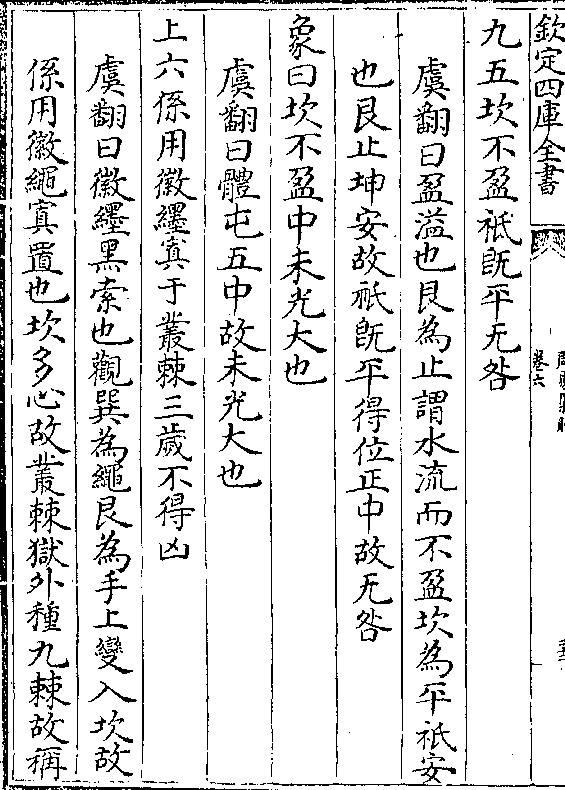 欽定四庫全書
卷六
九五坎不盈祗旣平无咎
虞翻曰盈溢也艮為止謂水流而不盈坎為平祗安
也艮止坤安故祗旣平得位正中故无咎
象曰坎不盈中未光大也
虞翻曰體屯五中故未光大也
上六係用徽纆寘于叢棘三歲不得凶
虞翻曰徽纆黑索也觀巽為繩艮為手上變入坎故
係用徽繩寘置也坎多心故叢棘獄外種九棘故稱